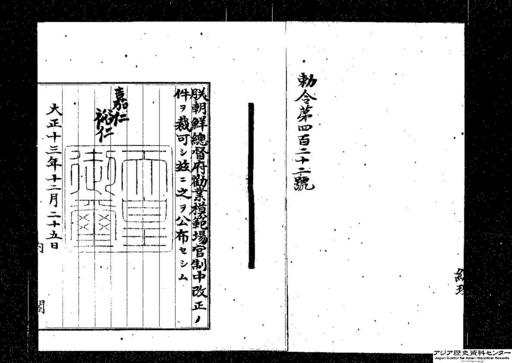 勅令第四百二十二號
朕朝鮮總督府勸業模範場官制中改正ノ
件ヲ裁可シ玆ニ之ヲ公布セシム
嘉仁
裕仁
天皇御璽
大正十三年十二月二十五日
内閣
アジア歴史資料センター
Japan Center for Asian Historical Records